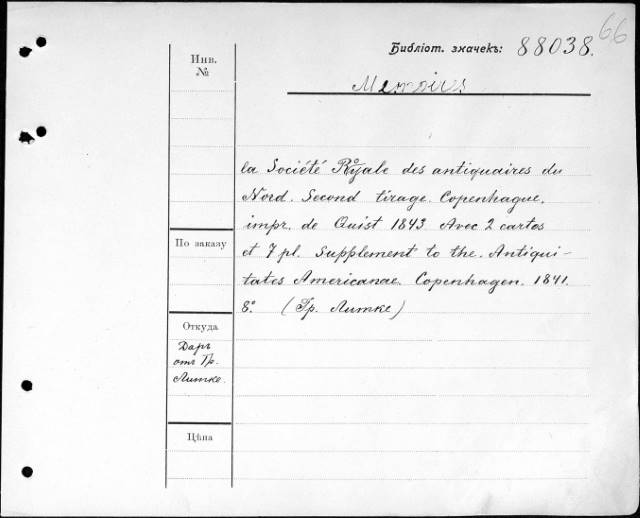 66
Библiот. значекъ: 88038.
Инв.
№
Memoires
la Société Royale des antiquaires du
Nord. Second tirage. Copenhague.
impr. de Quist 1843. Avec 2 cartes
et 7 pl. Supplement to the Antiqui-
tates Americanae. Copenhagen. 1841.
8° (Гр. Литке)
По заказу
Откуда
Даръ
отъ Гр.
Литке.
Цѣна